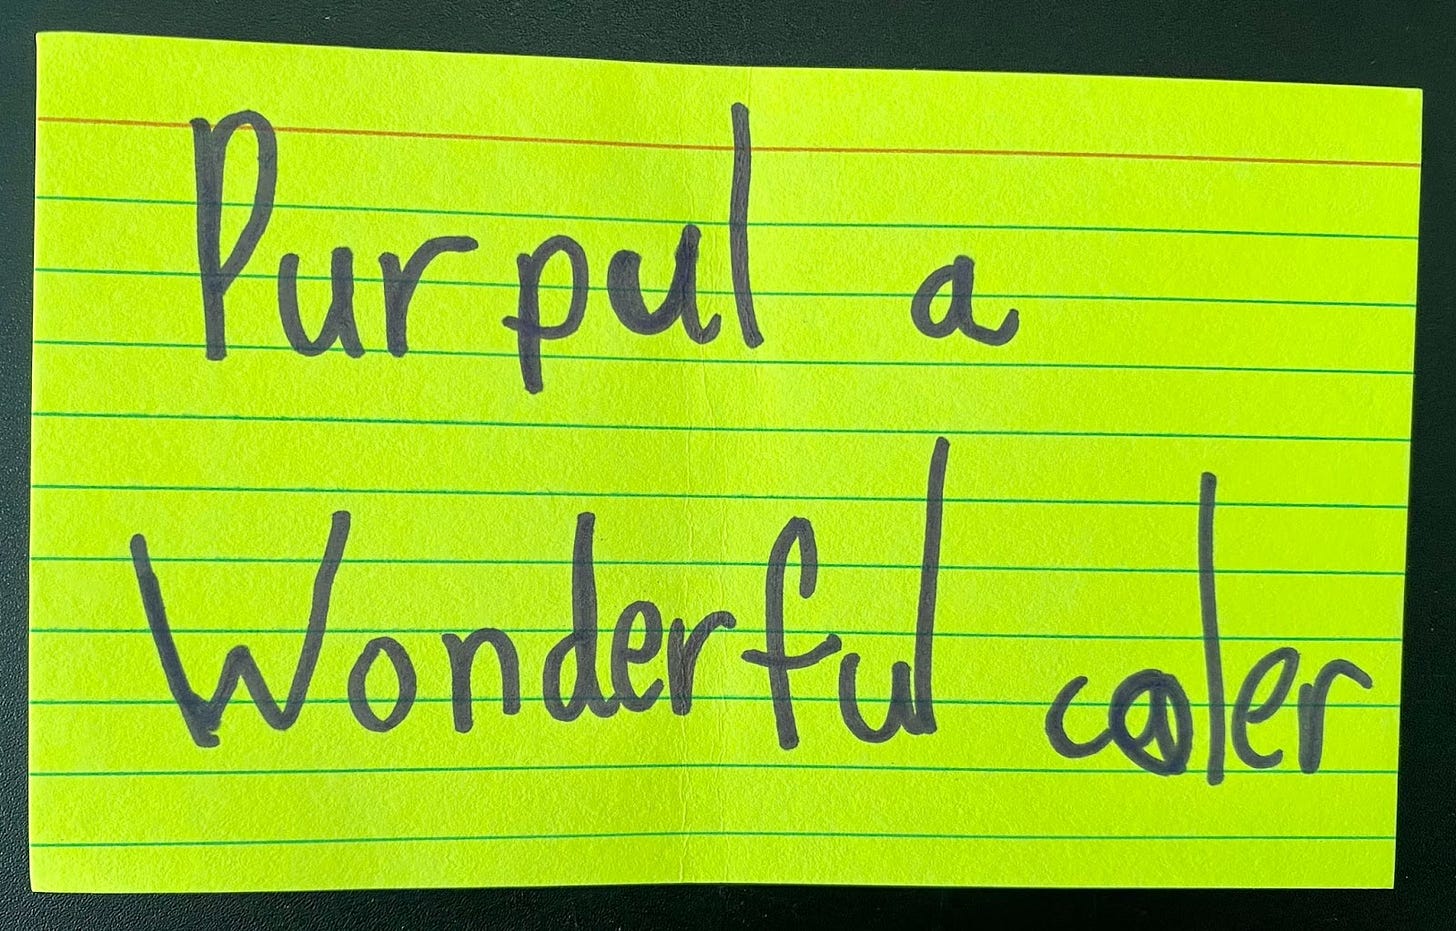 Purpul a
Wonderful coler